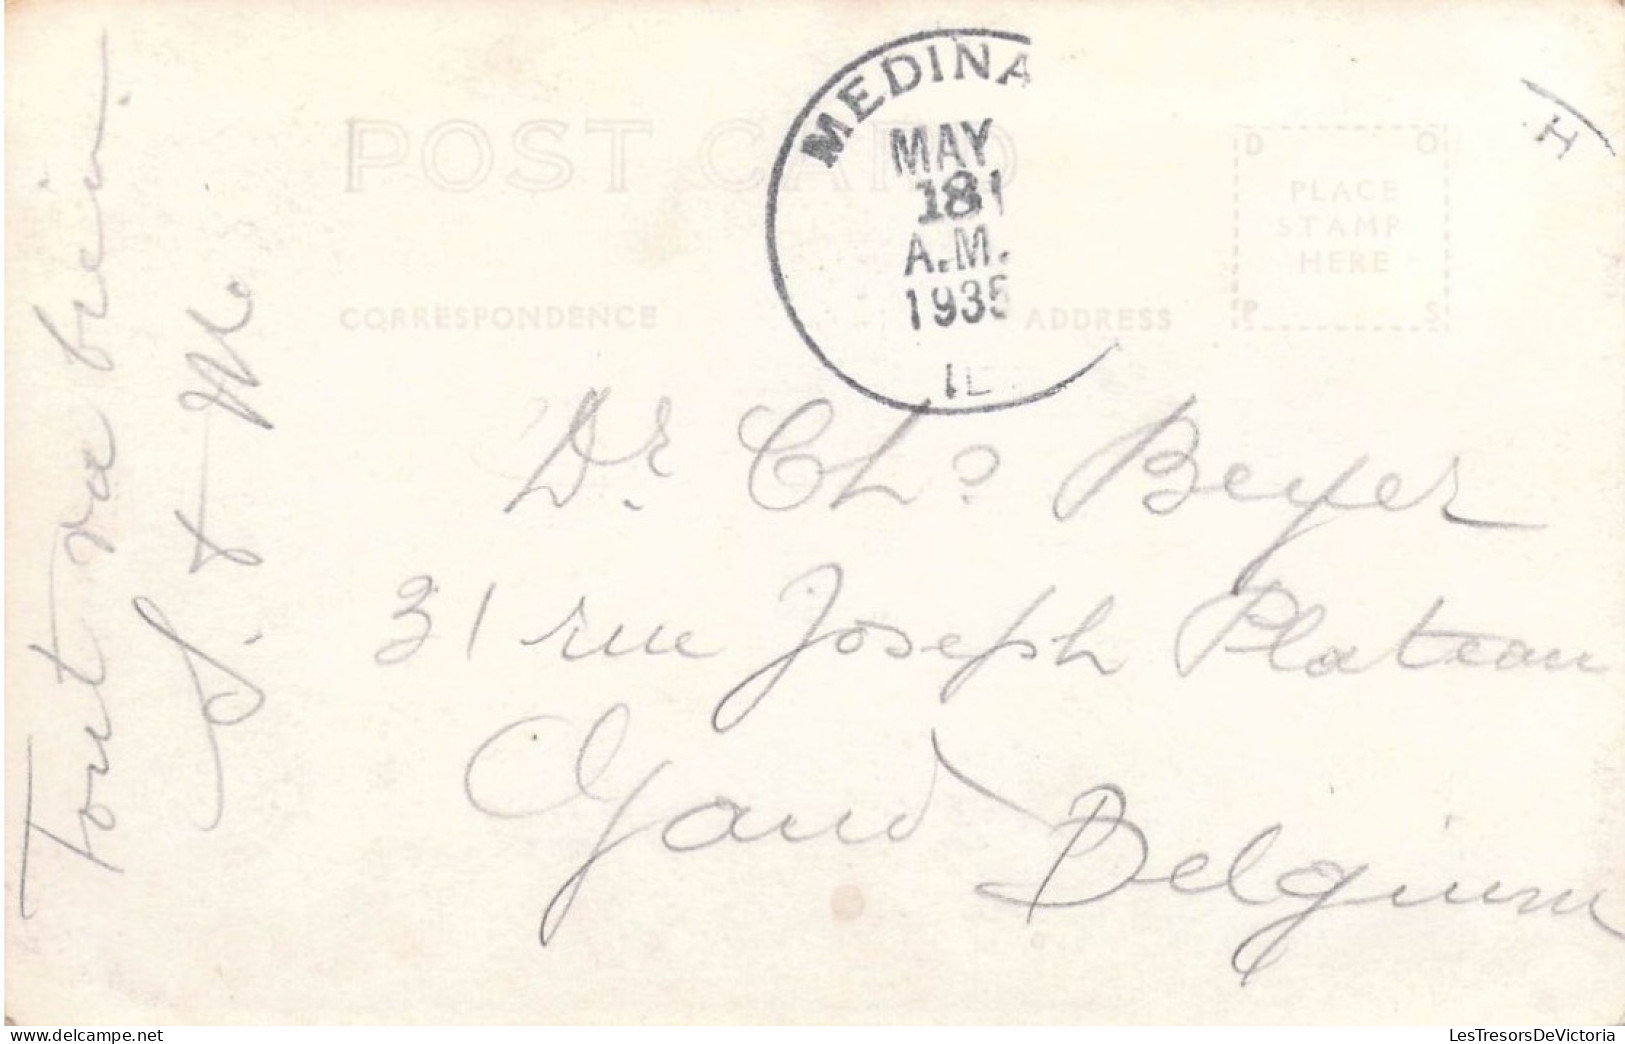 Tout va bien.
POST CARD
MEDINA
MAY
18
A.M.
1935
H
D O
PLACE
STAMP
HERE
P S
CORRESPONDENCE
ADDRESS
Dr. Chs Beyer
31 rue Joseph Plateau
Gand
Belgium
delcampe.net
LesTresorsDeVictoria